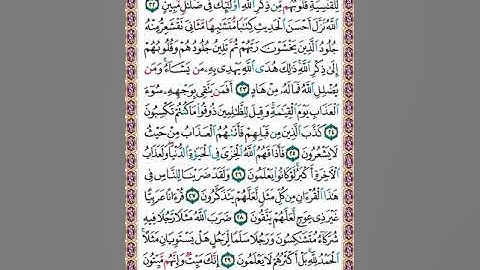 لِّلْقَٰسِيَةِ قُلُوبُهُم مِّن ذِكْرِ ٱللَّهِ أُو۟لَٰٓئِكَ فِى ضَلَٰلٍ مُّبِينٍ ٢٢
ٱللَّهُ نَزَّلَ أَحْسَنَ ٱلْحَدِيثِ كِتَٰبًا مُّتَشَٰبِهًا مَّثَانِىَ تَقْشَعِرُّ مِنْهُ
جُلُودُ ٱلَّذِينَ يَخْشَوْنَ رَبَّهُمْ ثُمَّ تَلِينُ جُلُودُهُمْ وَقُلُوبُهُمْ
إِلَىٰ ذِكْرِ ٱللَّهِ ذَٰلِكَ هُدَى ٱللَّهِ يَهْدِى بِهِۦ مَن يَشَآءُ وَمَن
يُضْلِلِ ٱللَّهُ فَمَا لَهُۥ مِنْ هَادٍ ٢٣ أَفَمَن يَتَّقِى بِوَجْهِهِۦ سُوٓءَ
ٱلْعَذَابِ يَوْمَ ٱلْقِيَٰمَةِ وَقِيلَ لِلظَّٰلِمِينَ ذُوقُوا۟ مَا كُنتُمْ تَكْسِبُونَ
٢٤ كَذَّبَ ٱلَّذِينَ مِن قَبْلِهِمْ فَأَتَىٰهُمُ ٱلْعَذَابُ مِنْ حَيْثُ
لَا يَشْعُرُونَ ٢٥ فَأَذَاقَهُمُ ٱللَّهُ ٱلْخِزْىَ فِى ٱلْحَيَوٰةِ ٱلدُّنْيَا وَلَعَذَابُ
ٱلْءَاخِرَةِ أَكْبَرُ لَوْ كَانُوا۟ يَعْلَمُونَ ٢٦ وَلَقَدْ ضَرَبْنَا لِلنَّاسِ فِى
هَٰذَا ٱلْقُرْءَانِ مِن كُلِّ مَثَلٍ لَّعَلَّهُمْ يَتَذَكَّرُونَ ٢٧ قُرْءَانًا عَرَبِيًّا
غَيْرَ ذِى عِوَجٍ لَّعَلَّهُمْ يَتَّقُونَ ٢٨ ضَرَبَ ٱللَّهُ مَثَلًا رَّجُلًا فِيهِ
شُرَكَآءُ مُتَشَٰكِسُونَ وَرَجُلًا سَلَمًا لِّرَجُلٍ هَلْ يَسْتَوِيَانِ مَثَلًا
ٱلْحَمْدُ لِلَّهِ بَلْ أَكْثَرُهُمْ لَا يَعْلَمُونَ ٢٩ إِنَّكَ مَيِّتٌ وَإِنَّهُم مَّيِّتُونَ